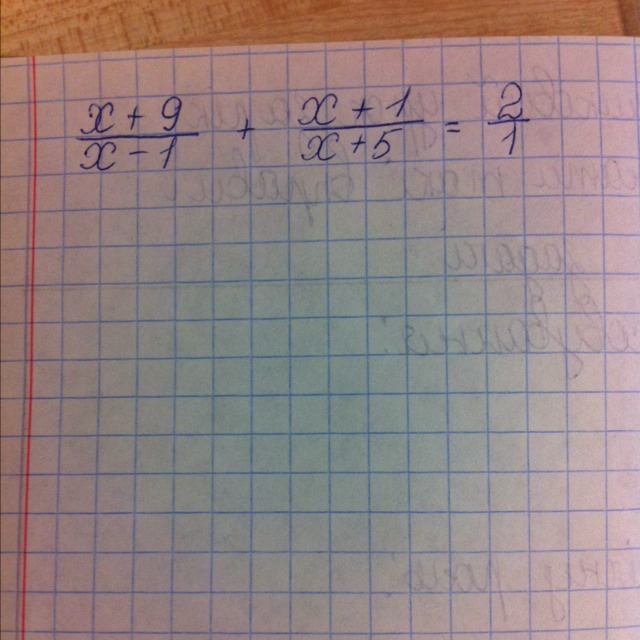 x + 9 / x - 1 + x + 1 / x + 5 = 2 / 1